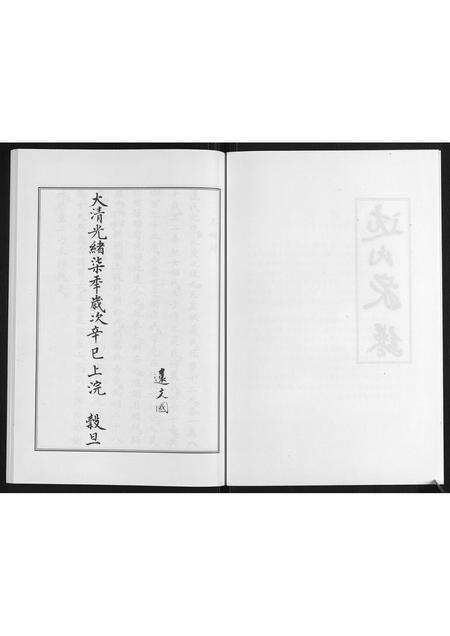 文國
大清光緒柒年歲次辛巳上浣 穀旦